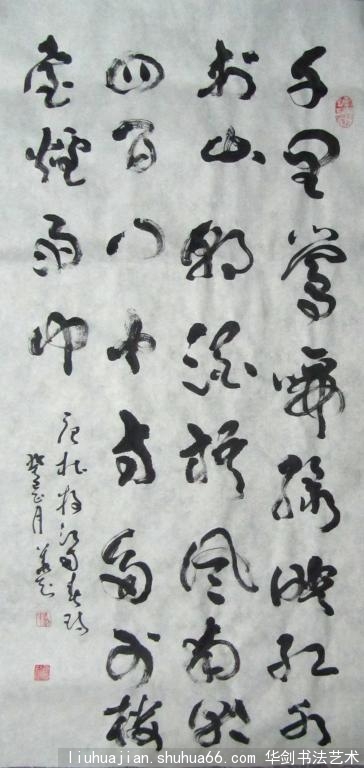 千里鶯啼綠映紅水
村山郭酒旗風南朝
四百八十寺多少樓
臺煙雨中
唐杜牧江南春詩
癸巳正月
liuhuajian.shuhua66.com 华剑书法艺术